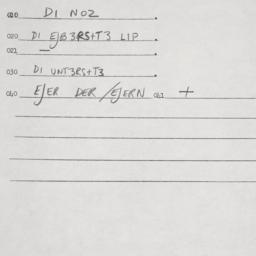 020 DI NOZ
020 DI EJB3RS+T3 LIP
021 —
030 DI UNT3RS+T3
040 EJER DER /EJERN 041 +